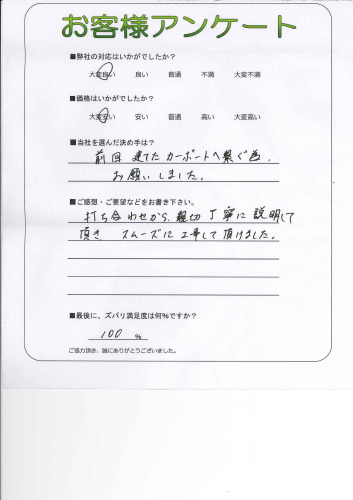 お客様アンケート
■弊社の対応はいかがでしたか?
大変良い 良い 普通 不満 大変不満
■価格はいかがでしたか?
大変安い 安い 普通 高い 大変高い
■当社を選んだ決め手は?
前回建てたカーポートへ繋ぐ為、
お願いしました。
■ご感想・ご要望などをお書き下さい。
打ち合わせから、親切丁寧に説明して
頂き スムーズに工事して頂けました。
■最後に、ズバリ満足度は何%ですか?
100 %
ご協力頂き、誠にありがとうございました。